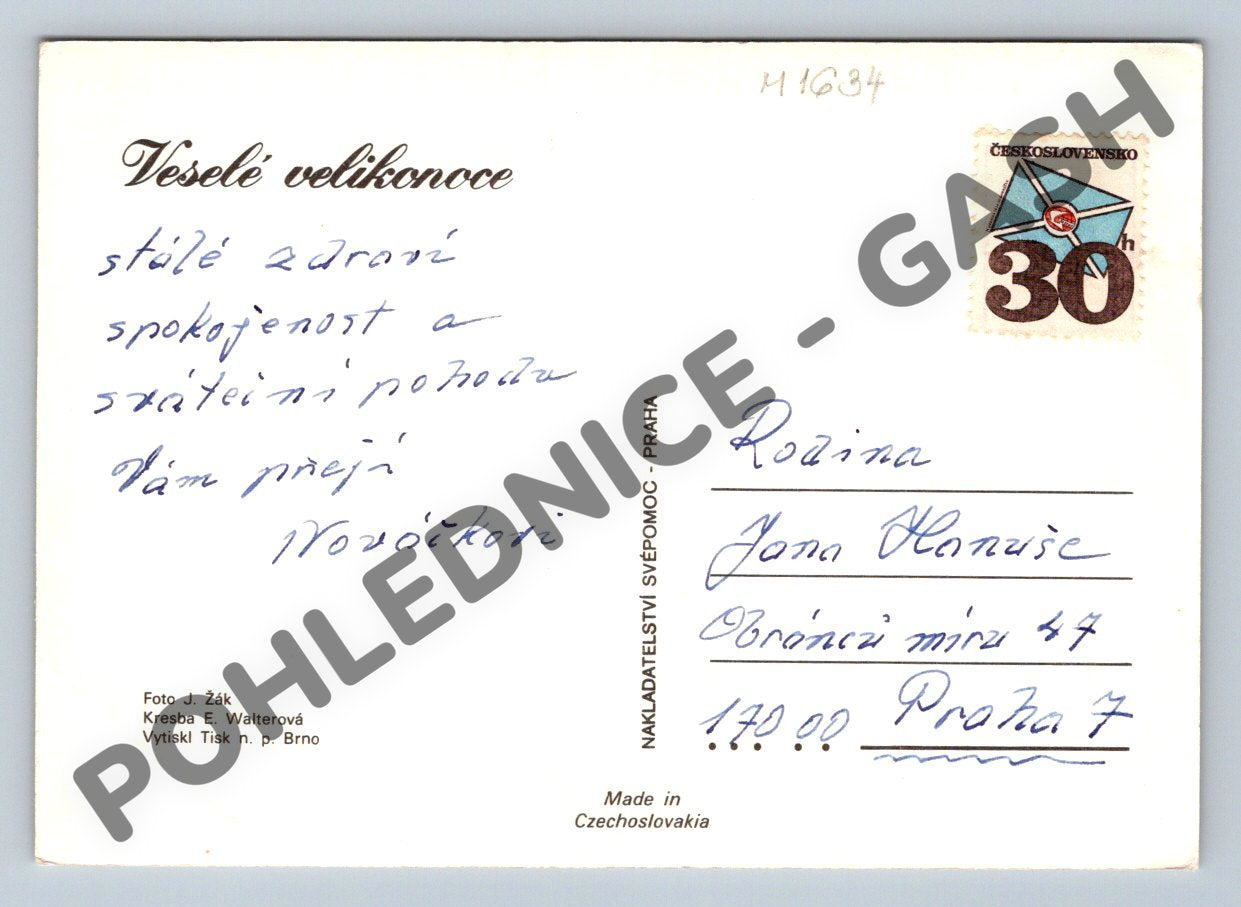 M 1634
Veselé velikonoce
stálé zdraví
spokojenost a
sváteční pohodu
Vám přejí
Nováčkovi
Foto J. Žák
Kresba E. Walterová
Vytiskl Tisk n. p. Brno
NAKLADATELSTVÍ SVÉPOMOC - PRAHA
Made in
Czechoslovakia
ČESKOSLOVENSKO
30 h
Rodina
Jana Hanuše
Obránců míru 47
170 00 Praha 7
POHLEDNICE - GASH